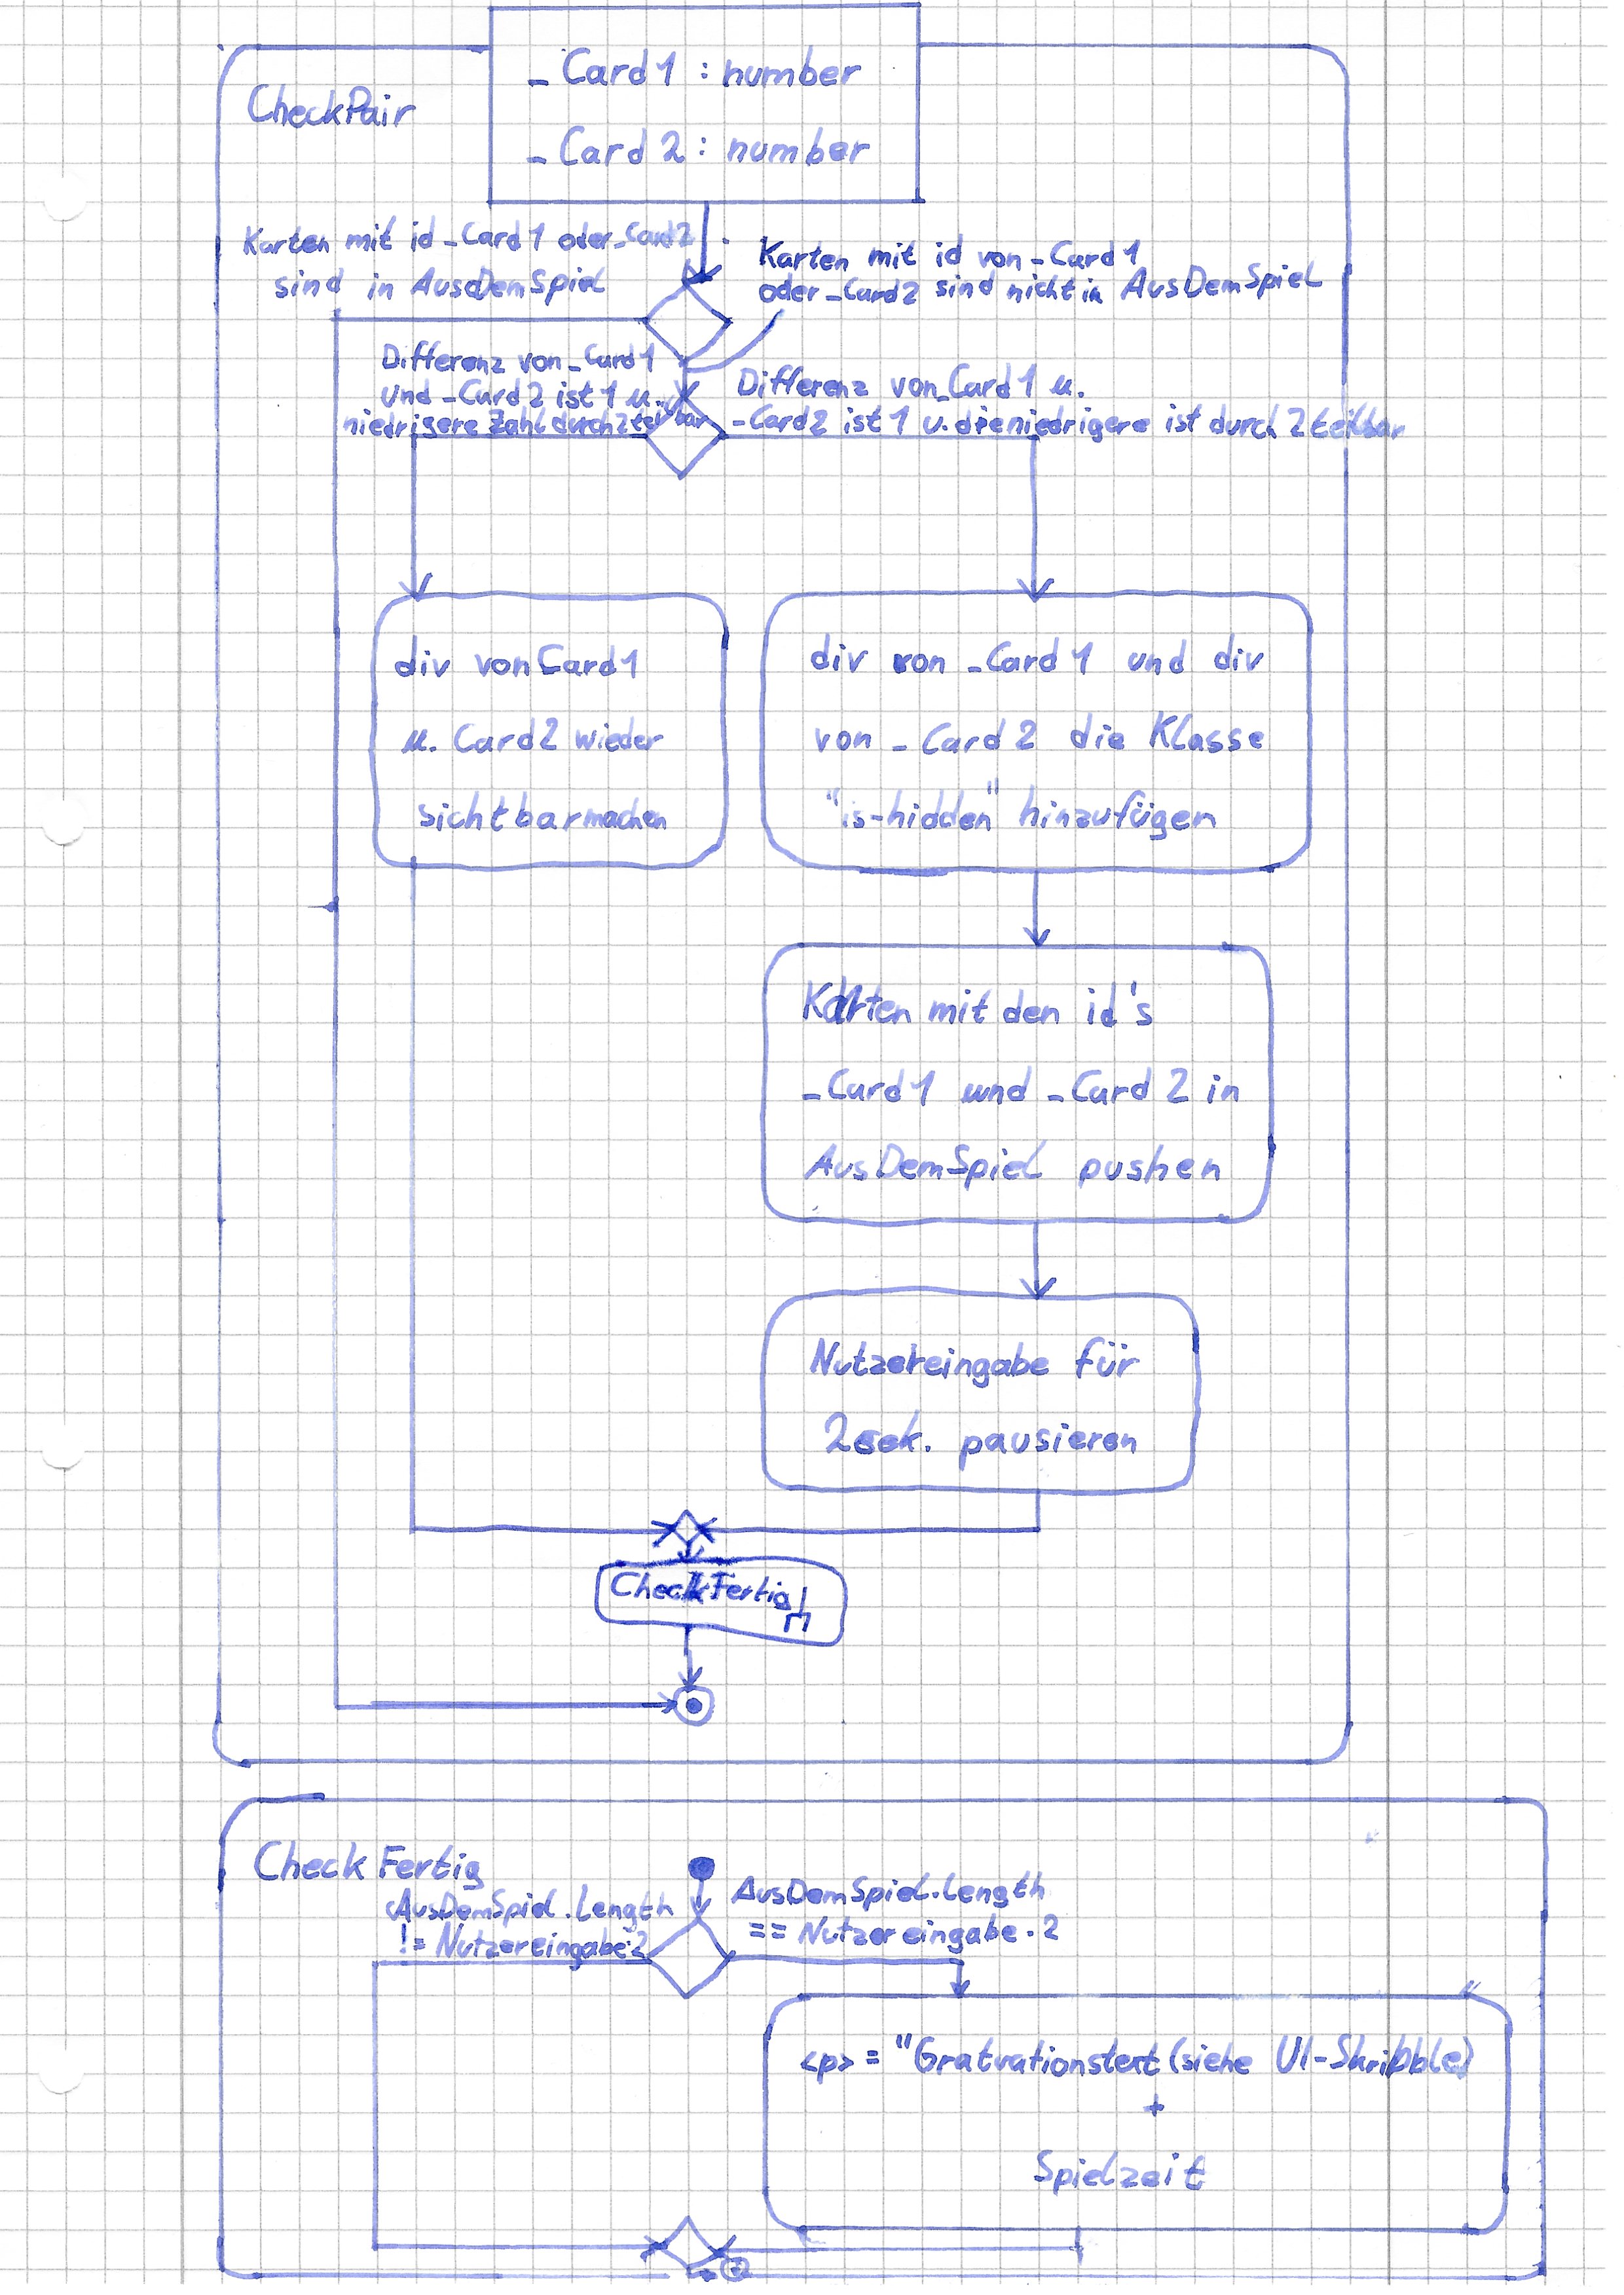 _Card1 : number
CheckPair
_Card2 : number
Karten mit id _Card1 oder _Card2
sind in AusDemSpiel
Karten mit id von _Card1
oder _Card2 sind nicht in AusDemSpiel
Differenz von _Card1
und _Card2 ist 1 u.
niedrigere Zahl durch 2 teilbar
Differenz von _Card1 u.
_Card2 ist 1 u. die niedrigere ist durch 2 teilbar
div von Card1
u. Card2 wieder
sichtbar machen
div von _Card1 und div
von _Card2 die Klasse
"is-hidden" hinzufügen
Karten mit den id's
_Card1 und _Card2 in
AusDemSpiel pushen
Nutzereingabe für
2sek. pausieren
CheckFertig
Check Fertig
AusDemSpiel.Length
!= Nutzereingabe·2
AusDemSpiel.Length
== Nutzereingabe·2
<p> = "Gratuationstext (siehe UI-Skribble)
+
Spielzeit